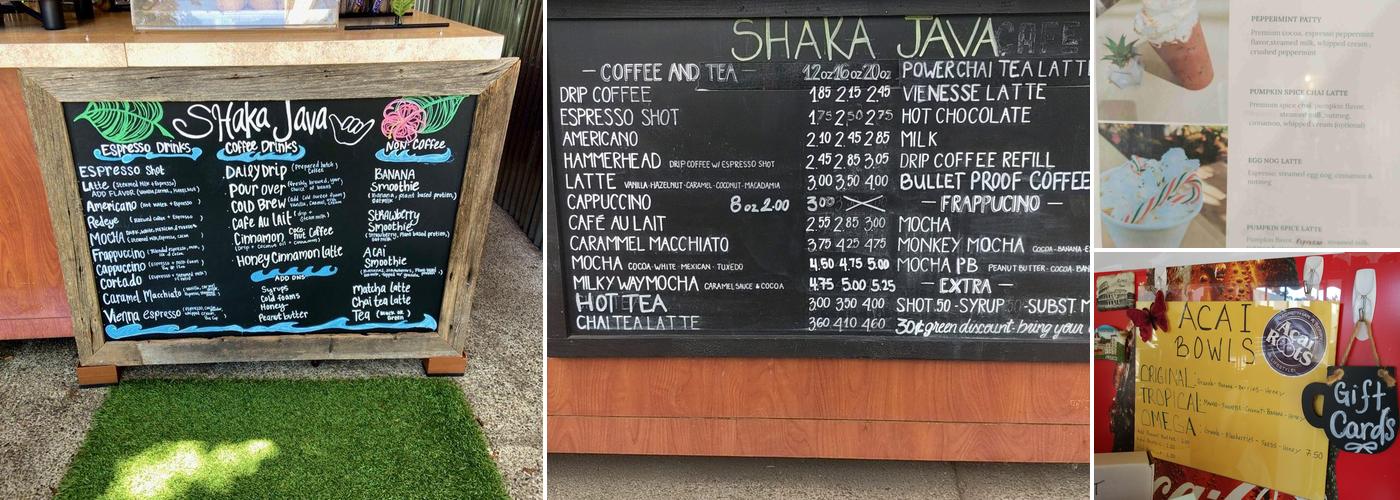 SHaka Java
Espresso Drinks
ESPRESSO Shot
Latte (Steamed Milk & Espresso)
ADD FLAVOR
Americano (Hot Water & Espresso)
Redeye
MOCHA
Frappuccino
Cappuccino
Cortado
Caramel Macchiato
Vienna Espresso
Coffee Drinks
Daily Drip (Prepared Batch Coffee)
Pour over (freshly brewed, your choice of beans)
COLD Brew
Cafe Au lait (drip + steam milk)
Cinnamon Coconut Coffee
Honey Cinnamon latte
ADD ONS
Syrups
Cold foams
Honey
Peanut butter
Non Coffee
BANANA
Smoothie
(Banana, plant based protein,
STRAWBERRY
Smoothie
(Strawberry, Plant based protein,
ACAI
Smoothie
Matcha latte
Chai tea latte
Tea (Black or Green)
SHAKA JAVA CAFE
COFFEE AND TEA 12oz 16oz 20oz
DRIP COFFEE 1.85 2.15 2.45
ESPRESSO SHOT 1.75 2.50 2.75
AMERICANO 2.10 2.45 2.85
HAMMERHEAD DRIP COFFEE W/ ESPRESSO SHOT 2.45 2.85 3.05
LATTE VANILLA·HAZELNUT·CARAMEL·COCONUT·MACADAMIA 3.00 3.50 4.00
CAPPUCCINO 8oz 2.00 3.00
CAFÉ AU LAIT 2.55 2.85 3.00
CARAMMEL MACCHIATO 3.75 4.25 4.75
MOCHA COCOA·WHITE·MEXICAN·TUXEDO 4.50 4.75 5.00
MILKY WAY MOCHA CARAMEL SAUCE & COCOA 4.75 5.00 5.25
HOT TEA 3.00 3.50 4.00
CHAI TEA LATTE 3.60 4.10 4.60
POWER CHAI TEA LATT
VIENESSE LATTE
HOT CHOCOLATE
MILK
DRIP COFFEE REFILL
BULLET PROOF COFFEE
FRAPPUCINO
MOCHA
MONKEY MOCHA COCOA·BANANA·E
MOCHA PB PEANUT BUTTER·COCOA·BAN
EXTRA
SHOT .50 -SYRUP -SUBST M
30¢ green discount-bring your
PEPPERMINT PATTY
Premium cocoa, espresso peppermint
flavor, steamed milk, whipped cream,
crushed peppermint
PUMPKIN SPICE CHAI LATTE
Premium spice chai, pumpkin flavor,
steamed milk, nutmeg,
cinnamon, whipped cream (optional)
EGG NOG LATTE
Espresso, steamed egg nog, cinnamon &
nutmeg
PUMPKIN SPICE LATTE
Pumpkin flavor, Espresso, steamed milk,
ACAI
BOWLS
Acai
ROOTS
ORIGINAL: Granola-Banana-Berries-Honey
TROPICAL:
OMEGA: Granola-Blueberries- -Honey 7.50
Gift
Cards